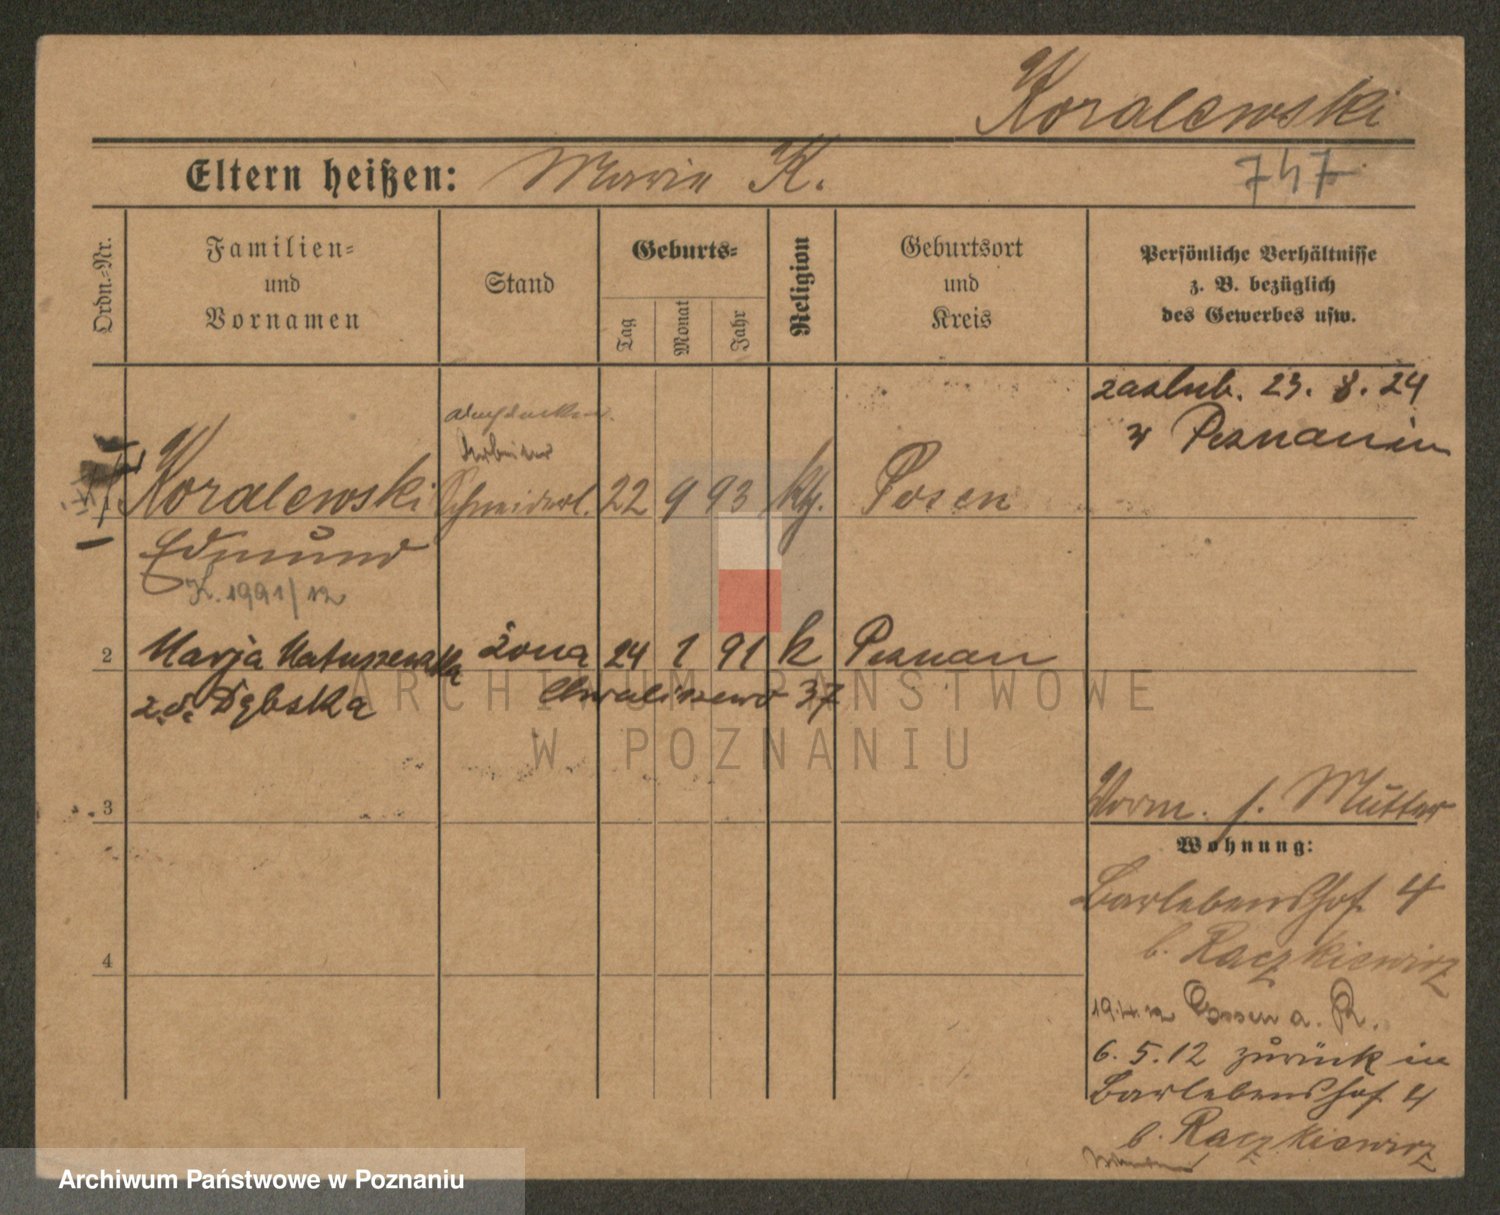 Koralewski
Eltern heißen: Maria K.
747
Ordn.-Nr.
Familien-
und
Vornamen
Stand
Geburts-
Tag
Monat
Jahr
Religion
Geburtsort
und
Kreis
Persönliche Verhältnisse
z. B. bezüglich
des Gewerbes usw.
zaślub. 23. 8. 24
w Poznaniu
Arbeiter
1 Koralewski Schneiderl. 22 9 93 kth. Posen
Edmund
K. 1991/12
2 Marja Matuszewska żona 24 1 91 k Poznan
z d. Dębska Chwaliszewo 37
3
Vorm. s. Mutter
Wohnung:
Barlebenshof 4
b. Raczkiewicz
4
19.4.12 Essen a. R.
6. 5. 12 zurück in
Barlebenshof 4
b. Raczkiewicz
ARCHIWUM PAŃSTWOWE
W POZNANIU
Archiwum Państwowe w Poznaniu